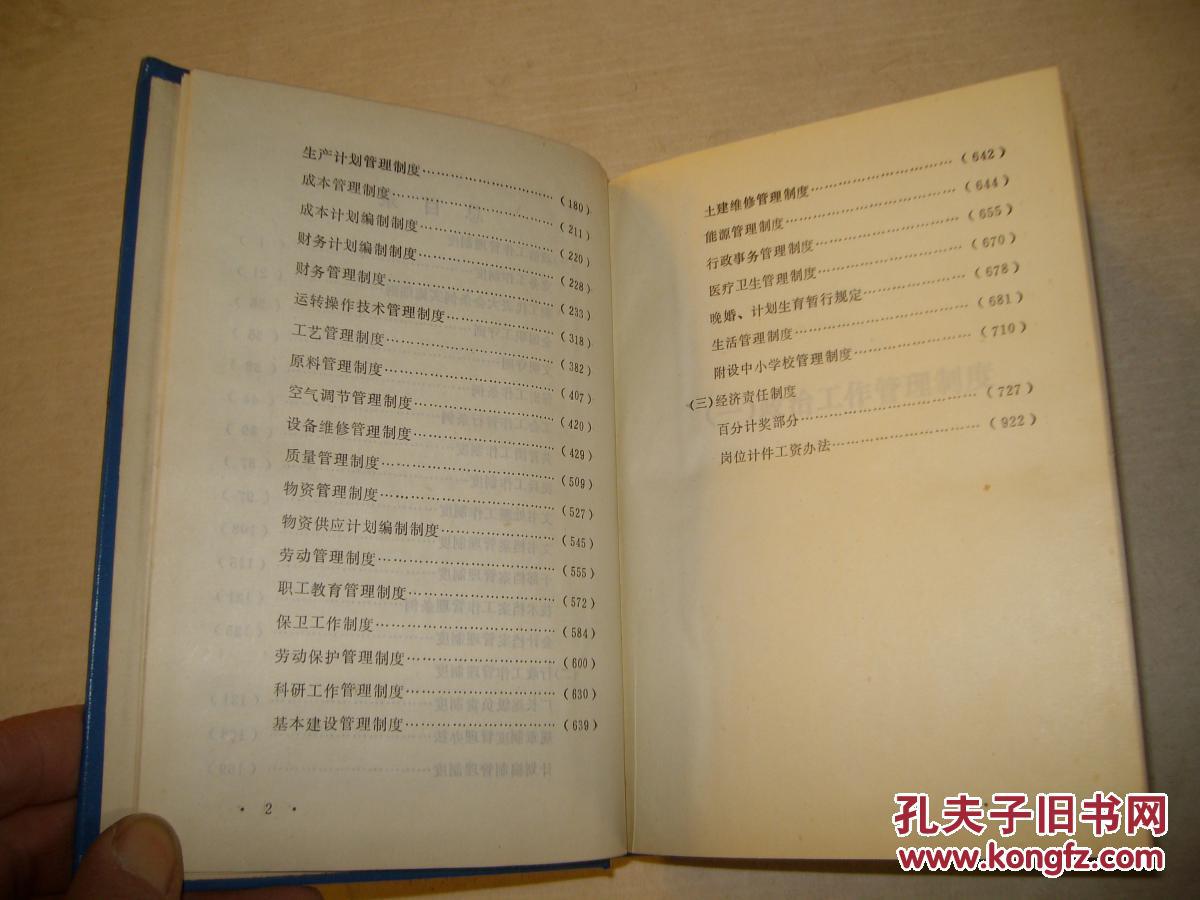 生产计划管理制度……………………（180）
成本管理制度……………………（211）
成本计划编制制度……………………（220）
财务计划编制制度……………………（228）
财务管理制度……………………（233）
运转操作技术管理制度……………………（318）
工艺管理制度……………………（382）
原料管理制度……………………（407）
空气调节管理制度……………………（420）
设备维修管理制度……………………（429）
质量管理制度……………………（509）
物资管理制度……………………（527）
物资供应计划编制制度……………………（545）
劳动管理制度……………………（555）
职工教育管理制度……………………（572）
保卫工作制度……………………（584）
劳动保护管理制度……………………（600）
科研工作管理制度……………………（630）
基本建设管理制度……………………（639）
· 2 ·
土建维修管理制度……………………（642）
能源管理制度……………………（644）
行政事务管理制度……………………（655）
医疗卫生管理制度……………………（670）
晚婚、计划生育暂行规定……………………（678）
生活管理制度……………………（681）
附设中小学校管理制度……………………（710）
(三)经济责任制度
百分计奖部分……………………（727）
岗位计件工资办法……………………（922）
孔夫子旧书网
www.kongfz.com